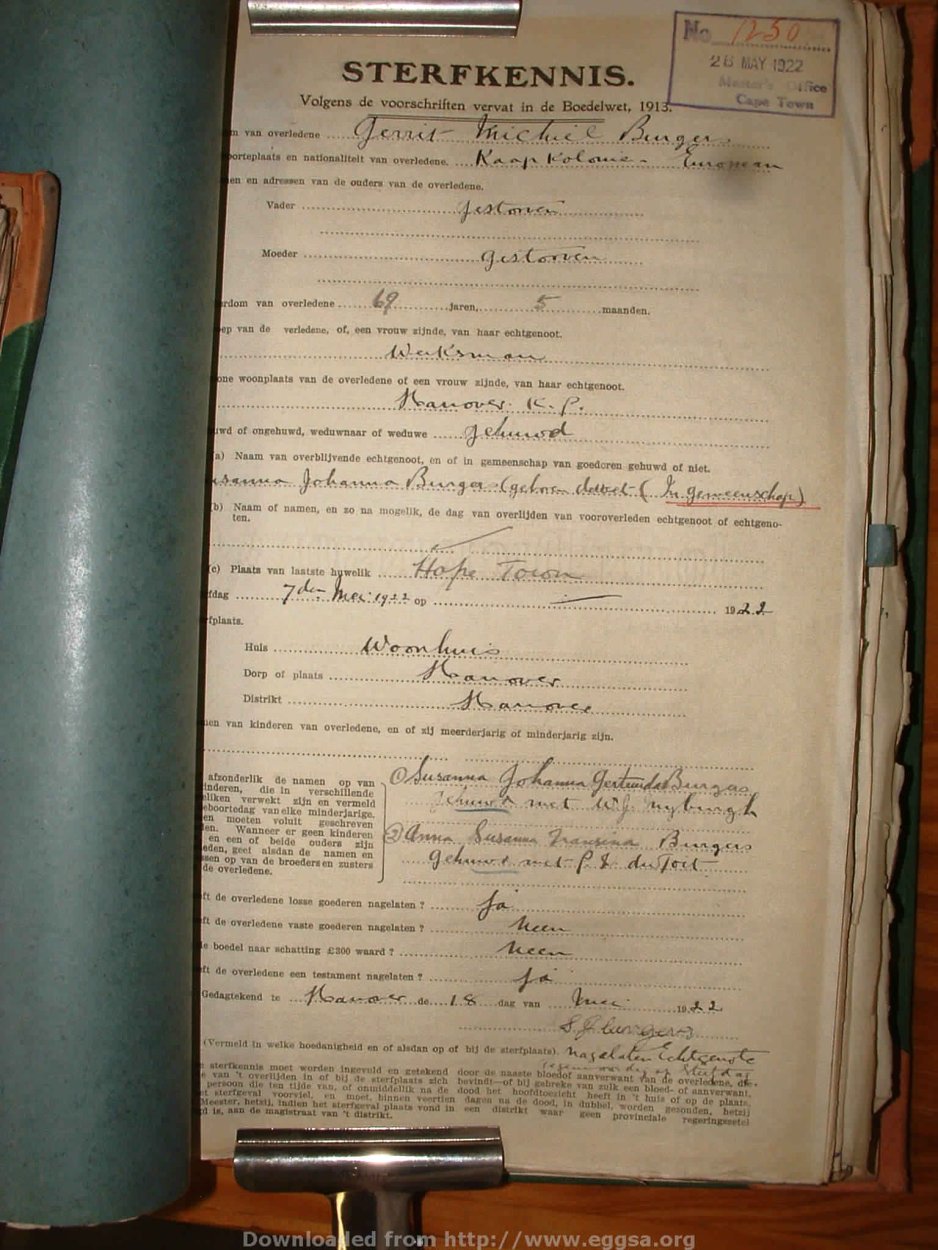 No 1250
26 MAY 1922
Master's Office
Cape Town
STERFKENNIS.
Volgens de voorschriften vervat in de Boedelwet, 1913.
m van overledene Gerrit Michiel Burger
oorteplaats en nationaliteit van overledene. Kaap Kolonie European
en en adressen van de ouders van de overledene.
Vader gestorven
Moeder gestorven
rdom van overledene 69 jaren, 5 maanden.
ep van de verledene, of, een vrouw zijnde, van haar echtgenoot.
Werksman
one woonplaats van de overledene of een vrouw zijnde, van haar echtgenoot.
Hanover K. P.
uwd of ongehuwd, weduwnaar of weduwe gehuwd
a) Naam van overblijvende echtgenoot, en of in gemeenschap van goederen gehuwd of niet.
usanna Johanna Burger (geboren (In gemeenschap)
(b) Naam of namen, en zo na mogelik, de dag van overlijden van vooroverleden echtgenoot of echtgeno-
ten.
(c) Plaats van laatste huwelik Hope Town
fdag 7den Mei 1922 op 1922
rfplaats.
Huis Woonhuis
Dorp of plaats Hanover
Distrikt Hanover
nen van kinderen van overledene, en of zij meerderjarig of minderjarig zijn.
afzonderlik de namen op van
inderen, die in verschillende
eliken verwekt zijn en vermeld
eboortedag van elke minderjarige.
en moeten voluit geschreven
den. Wanneer er geen kinderen
en een of beide ouders zijn
eden, geef alsdan de namen en
ssen op van de broeders en zusters
de overledene.
(1) Susanna Johanna Gertruida Burger
gehuwd met W. J. Nyburgh
(2) Anna Susanna Fransina Burgers
gehuwd met P. J. du Toit
ft de overledene losse goederen nagelaten ? Ja
ft de overledene vaste goederen nagelaten ? Neen
le boedel naar schatting £300 waard ? Neen
ft de overledene een testament nagelaten ? Ja
Gedagtekend te Hanover de 18 dag van Mei 1922
S. J. Burgers
(Vermeld in welke hoedanigheid en of alsdan op of bij de sterfplaats). Nagelaten Echtgenote
tegenwoordig op Sterfdag
sterfkennis moet worden ingevuld en getekend door de naaste bloedof aanverwant van de overledene, die
e van 't overlijden in of bij de sterfplaats zich bevindt—of bij gebreke van zulk een bloed- of aanverwant,
persoon die ten tijde van, of onmiddellik na de dood het hoofdtoezicht heeft in 't huis of op de plaats,
et sterfgeval voorviel, en moet, binnen veertien dagen na de dood, in dubbel, worden gezonden, hetzij
Meester, hetzij, indien het sterfgeval plaats vond in een distrikt waar geen provinciale regeringszetel
d is, aan de magistraat van 't distrikt.
Downloaded from http://www.eggsa.org